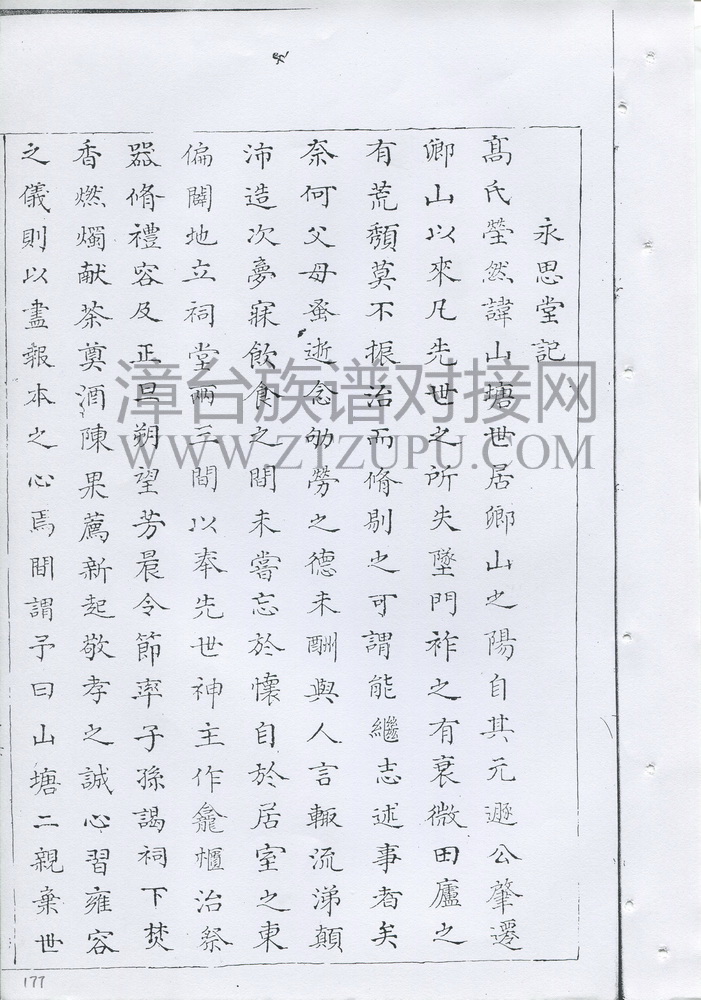 永思堂記
髙氏瑩然諱山塘世居鄉山之陽自其元遜公肇遷
鄉山以來凡先世之所失墜門祚之有衰微田廬之
有荒頽莫不振治而脩剔之可謂能繼志述事者矣
奈何父母蚤逝念劬勞之德未酬與人言輙流涕顛
沛造次夢寐飲食之間未嘗忘於懷自於居室之東
偏闢地立祠堂兩三間以奉先世神主作龕櫃治祭
器脩禮容及正旦朔望芳晨令節率子孫謁祠下焚
香燃燭献茶奠酒陳果薦新起敬孝之誠心習雍容
之儀則以盡報本之心焉間謂予曰山塘二親棄世
漳台族谱对接网
WWW.ZTZUPU.COM
177